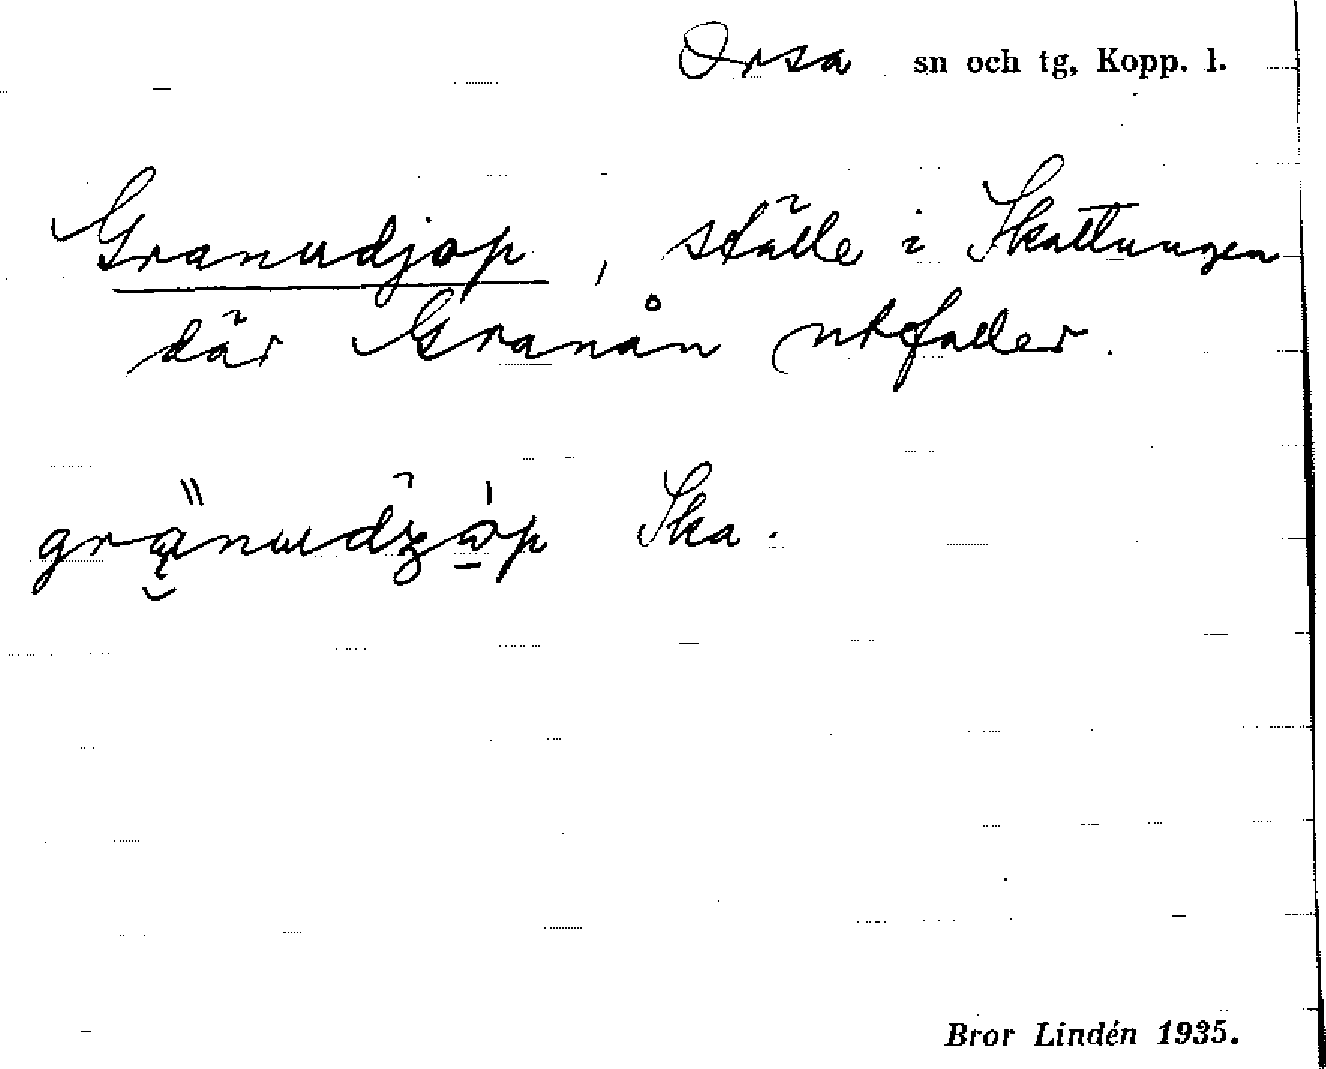 Orsa sn och tg, Kopp. l.
Granudjop, ställe i Skattungen
där Granån utfaller.
Ska.
Bror Lindén 1935.